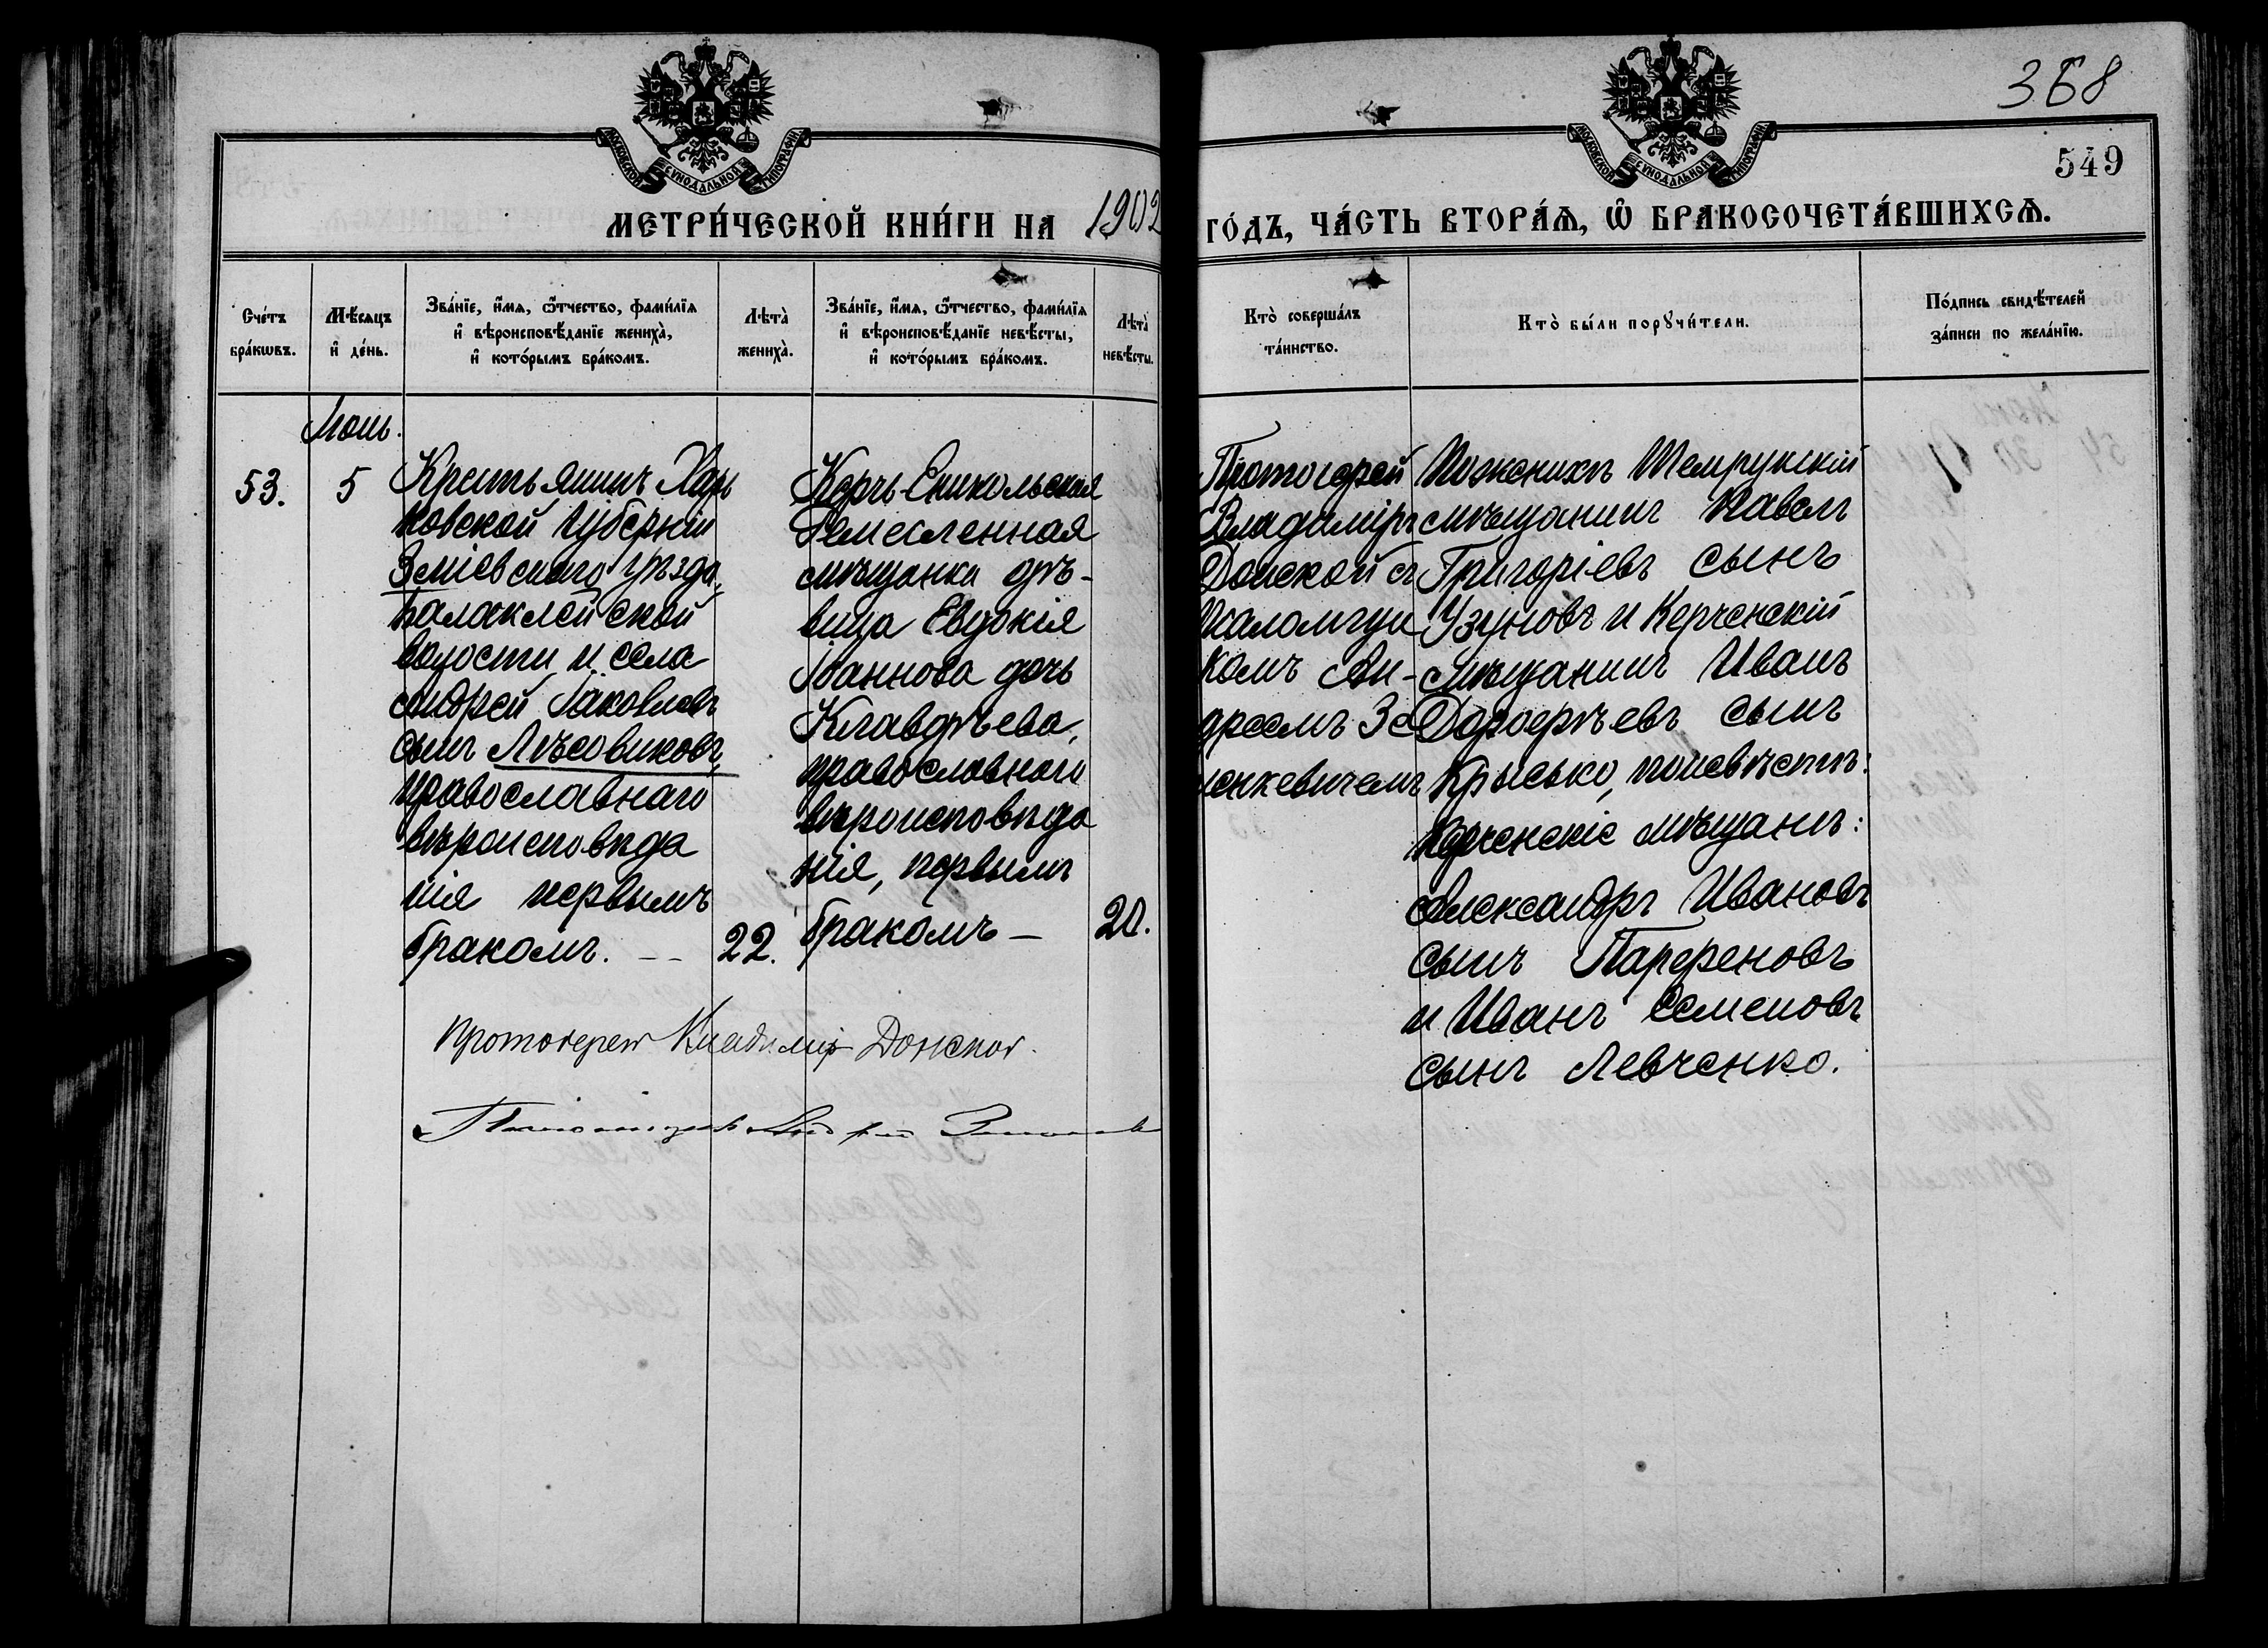 368
549
МОСКОВСКОЙ СѴНОДАЛЬНОЙ ТИПОГРАФІИ
МОСКОВСКОЙ СѴНОДАЛЬНОЙ ТИПОГРАФІИ
МЕТРИ́ЧЕСКОЙ КНИ́ГИ НА 1902
ГО́ДЪ, ЧА́СТЬ ВТОРА́Я, Ѡ҆ БРАКОСОЧЕТА́ВШИХСЯ.
Сче́тъ
бра́кѡвъ.
Мѣ́сяцъ
и҆ де́нь.
Зва́нїе, и҆́мя, ѻ҆́тчество, фами́лїя
и҆ вѣроисповѣ́данїе жениха̀,
и҆ кото́рымъ бра́комъ.
Лѣта̀
жениха̀.
Зва́нїе, и҆́мя, ѻ҆́тчество, фами́лїя
и҆ вѣроисповѣ́данїе невѣ́сты,
и҆ кото́рымъ бра́комъ.
Лѣта̀
невѣ́сты.
Кто̀ соверша́лъ
та́инство.
Кто̀ бы́ли порꙋчи́тели.
По́дпись свидѣ́телей
за́писи по жела́нїю.
53.
5
Крестьянинъ Харь
ковской губерніи
Зміевскаго уѣзда,
Балаклейской
волости и села
Андрей Іаковлевъ
сынъ Лѣсовиковъ,
православнаго
вѣроисповѣда
нія первымъ
бракомъ. - -
22.
Керчь-Еникольская
Ремесленная
мѣщанка дѣ-
вица Евдокія
Іоаннова дочь
Клавдѣева,
православнаго
вѣроисповѣда
нія, первымъ
бракомъ -
20.
Протоіерей
Владиміръ
Донской съ
Псаломщи
комъ Ан-
дреемъ Зе
ненкевичемъ
По женихѣ Темрукскій
мѣщанинъ Павелъ
Григоріевъ сынъ
Узуновъ и Керченскій
мѣщанинъ Иванъ
Дорофѣевъ сынъ
Крысько, по невѣстѣ:
Керченскіе мѣщане:
Александръ Ивановъ
сынъ Парфеновъ
и Иванъ Семеновъ
сынъ Левченко.
Протоіерей Владиміръ Донской.
Псаломщикъ Андрей